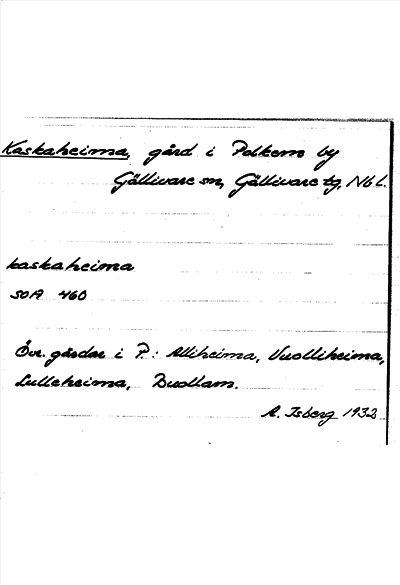 Kaskaheima, gård i Polkem by
Gällivare sn, Gällivare tg, Nb l.
kaskaheima
SOA 460
Övr. gårdar i P.: Alliheima, Vuolliheima,
Lulleheima, Duollam.
A. Isberg 1932